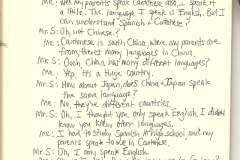 Me: Well my parents speak Cantonese, also, I speak it
a little. The language I speak is English. But I
can understand Spanish & Cantonese?
Mr. S: Oh, not Chinese?
Me: Cantonese is south China, where my parents are
from, there's many languages in China.
Mr. S: Oooh, China has many different languages?
Me: Yep, it's a huge country.
Mr. S: How about Japan, does China & Japan speak
the same language?
Me: No, they're different countries.
Mr. S: Oh, I thought you only speak English, I didn't
know you knew other languages.
Me: I had to study Spanish in high school and my
parents speak to me in Cantonese.
Mr. S: Oh, I only speak English.